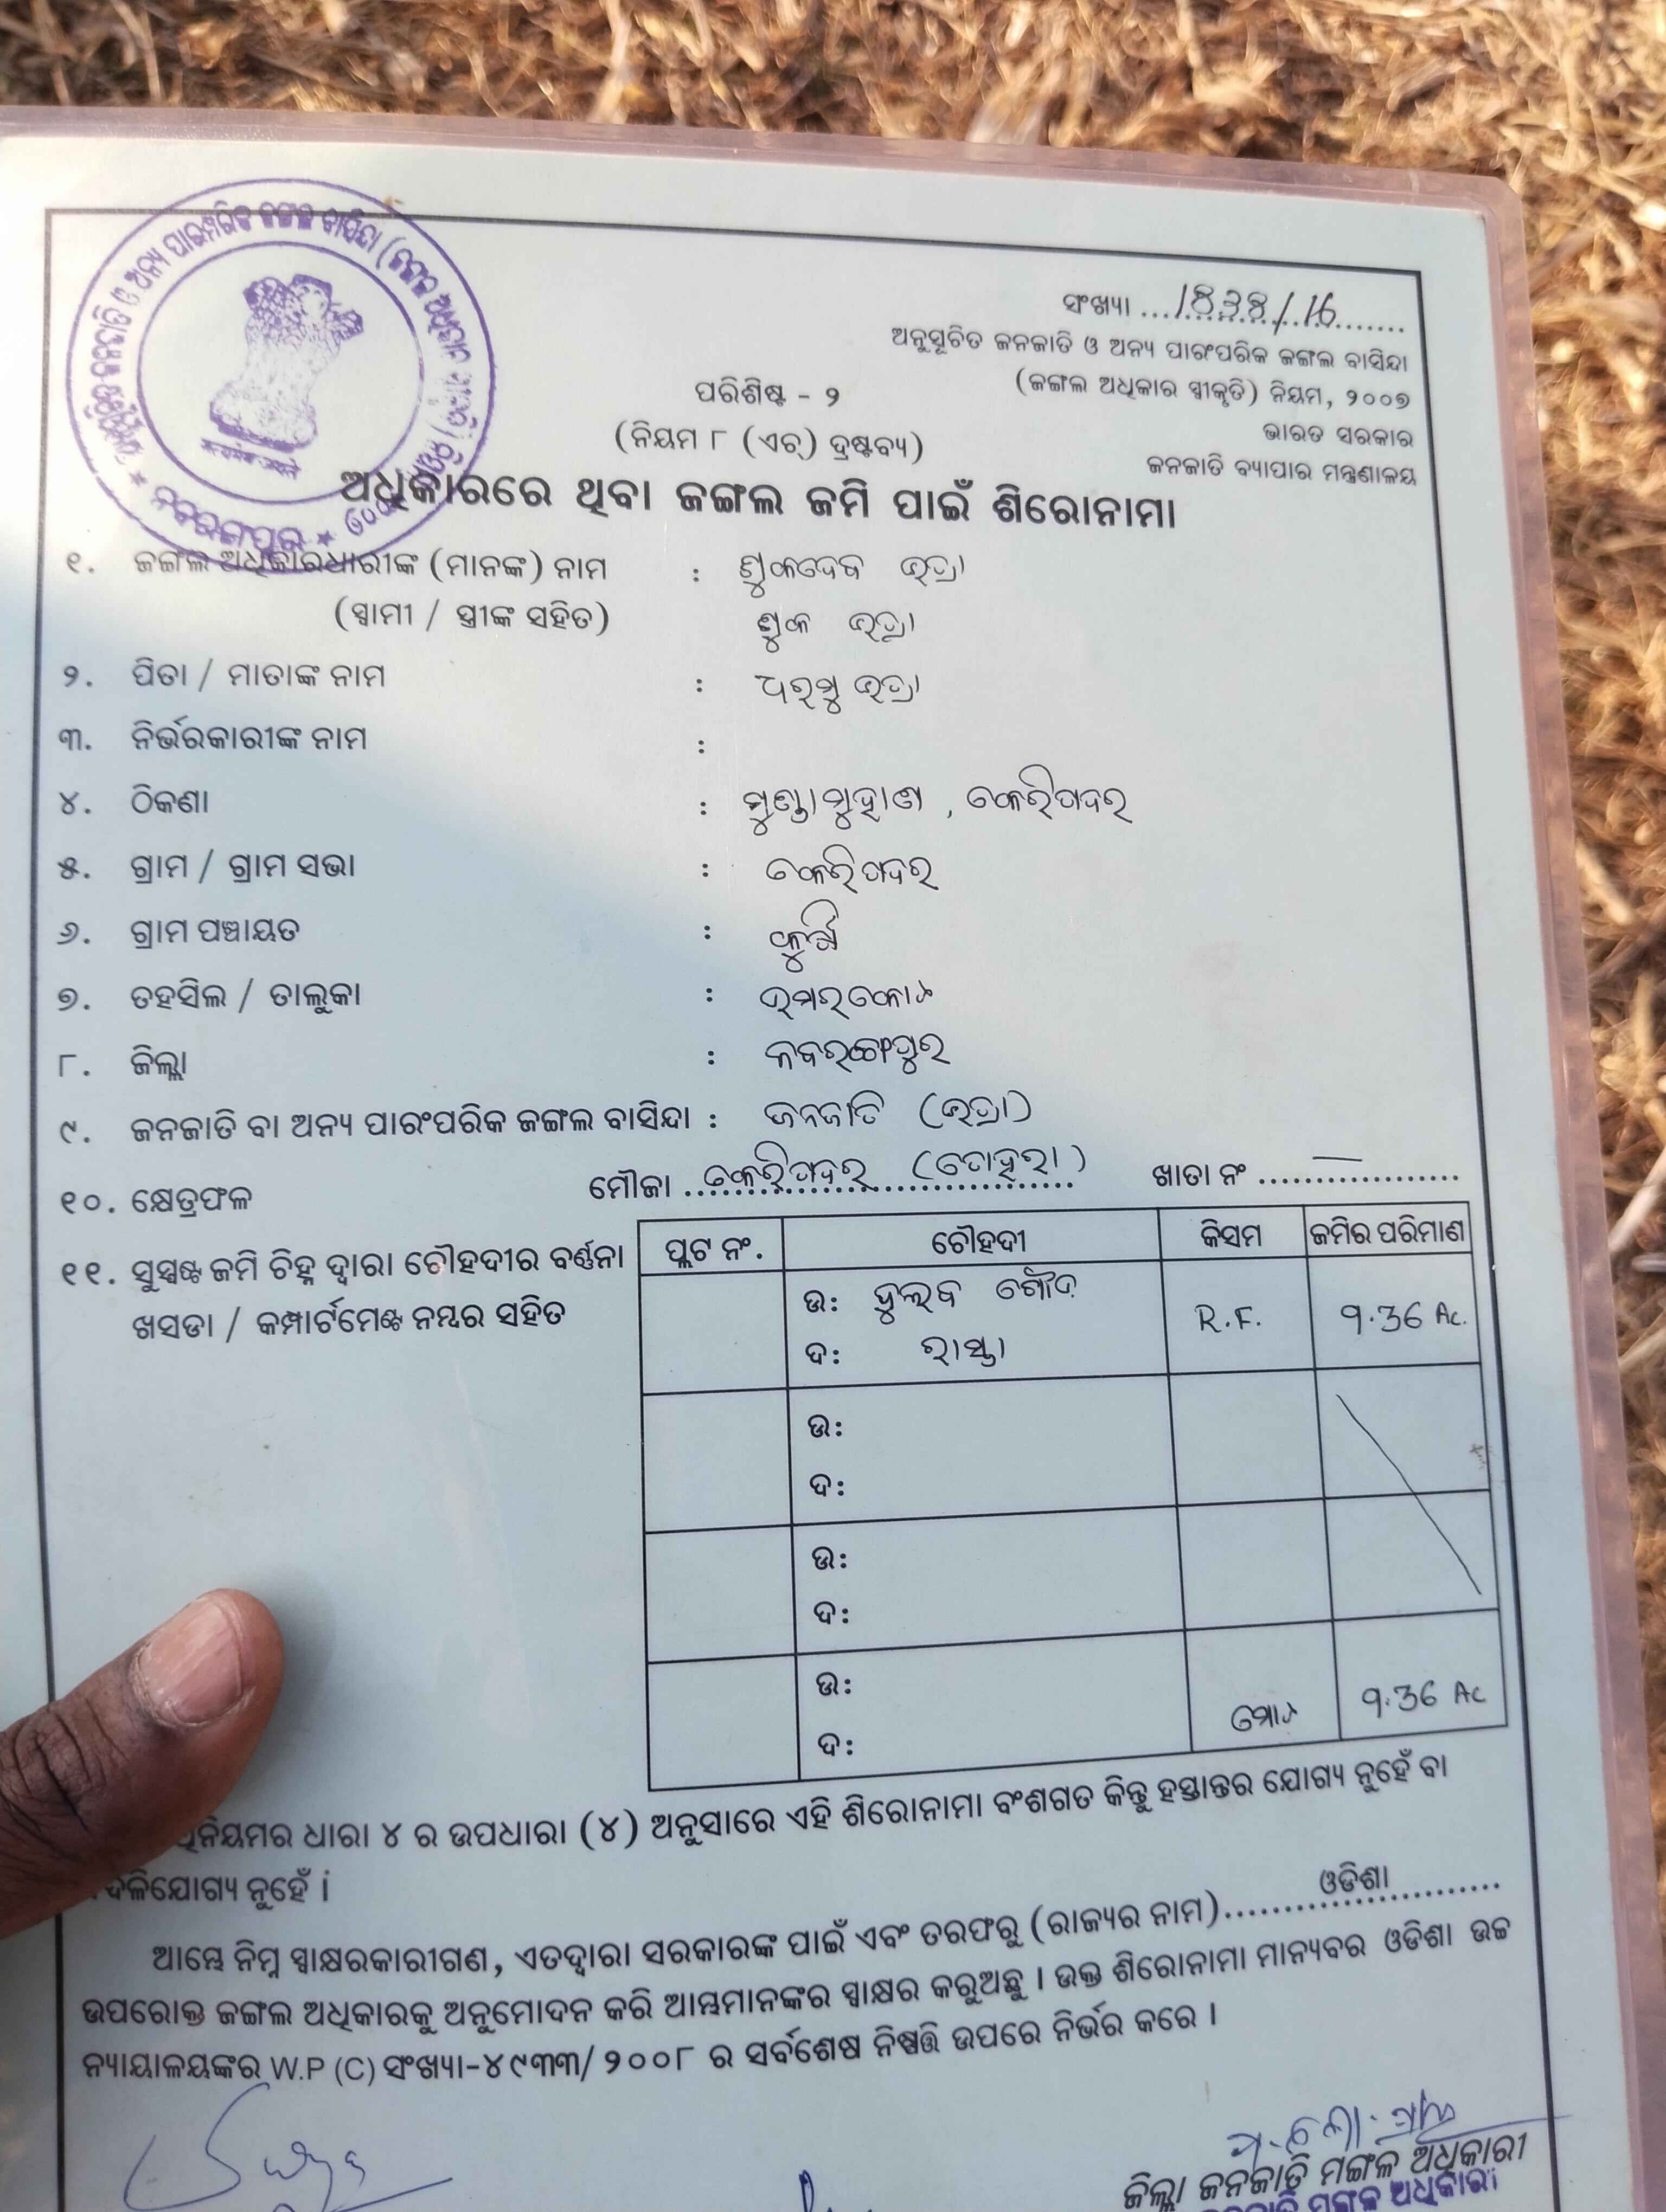 ସଂଖ୍ୟା ... 1838/16
ଅନୁସୂଚିତ ଜନଜାତି ଓ ଅନ୍ୟ ପାରଂପରିକ ଜଙ୍ଗଲ ବାସିନ୍ଦା
(ଜଙ୍ଗଲ ଅଧିକାର ସ୍ୱୀକୃତି) ନିୟମ, ୨୦୦୭
ଭାରତ ସରକାର
ଜନଜାତି ବ୍ୟାପାର ମନ୍ତ୍ରଣାଳୟ
ପରିଶିଷ୍ଟ - ୨
(ନିୟମ ୮ (ଏଚ୍) ଦ୍ରଷ୍ଟବ୍ୟ)
ଅଧିକାରରେ ଥିବା ଜଙ୍ଗଲ ଜମି ପାଇଁ ଶିରୋନାମା
ନବରଙ୍ଗପୁର
୧. ଜଙ୍ଗଲ ଅଧିକାରଧାରୀଙ୍କ (ମାନଙ୍କ) ନାମ :
(ସ୍ୱାମୀ / ସ୍ତ୍ରୀଙ୍କ ସହିତ)
୨. ପିତା / ମାତାଙ୍କ ନାମ :
୩. ନିର୍ଭରକାରୀଙ୍କ ନାମ :
୪. ଠିକଣା : ମୁଣ୍ଡାମୁହାଣ , କେରିପଦର
୫. ଗ୍ରାମ / ଗ୍ରାମ ସଭା : କେରିପଦର
୬. ଗ୍ରାମ ପଞ୍ଚାୟତ :
୭. ତହସିଲ / ତାଲୁକା : ଉମରକୋଟ
୮. ଜିଲ୍ଲା : ନବରଙ୍ଗପୁର
୯. ଜନଜାତି ବା ଅନ୍ୟ ପାରଂପରିକ ଜଙ୍ଗଲ ବାସିନ୍ଦା : ଜନଜାତି
୧୦. କ୍ଷେତ୍ରଫଳ ମୌଜା ... କେରିପଦର ... ଖାତା ନଂ ...
୧୧. ସୁସ୍ପଷ୍ଟ ଜମି ଚିହ୍ନ ଦ୍ୱାରା ଚୌହଦୀର ବର୍ଣ୍ଣନା
ଖସଡା / କମ୍ପାର୍ଟମେଣ୍ଟ ନମ୍ବର ସହିତ
ପ୍ଲଟ ନଂ. ଚୌହଦୀ କିସମ ଜମିର ପରିମାଣ
ଉ: ଦୁଲବ ଗୌଡ଼ R.F. 9.36 Ac.
ଦ: ରାସ୍ତା
ଉ:
ଦ:
ଉ:
ଦ:
ଉ:
ଦ: ମୋଟ 9.36 Ac
ଧାରା ୪ ର ଉପଧାରା (୪) ଅନୁସାରେ ଏହି ଶିରୋନାମା ବଂଶଗତ କିନ୍ତୁ ହସ୍ତାନ୍ତର ଯୋଗ୍ୟ ନୁହେଁ ବା
ନୁହେଁ i
ଆମ୍ଭେ ନିମ୍ନ ସ୍ୱାକ୍ଷରକାରୀଗଣ, ଏତଦ୍ୱାରା ସରକାରଙ୍କ ପାଇଁ ଏବଂ ତରଫରୁ (ରାଜ୍ୟର ନାମ)... ଓଡିଶା ...
ଉପରୋକ୍ତ ଜଙ୍ଗଲ ଅଧିକାରକୁ ଅନୁମୋଦନ କରି ଆମ୍ଭମାନଙ୍କର ସ୍ୱାକ୍ଷର କରୁଅଛୁ । ଉକ୍ତ ଶିରୋନାମା ମାନ୍ୟବର ଓଡିଶା ଉଚ୍ଚ
ନ୍ୟାୟାଳୟଙ୍କର W.P (C) ସଂଖ୍ୟା-୪୯୩୩/୨୦୦୮ ର ସର୍ବଶେଷ ନିଷ୍ପତ୍ତି ଉପରେ ନିର୍ଭର କରେ ।
ଜିଲ୍ଲା ଜନଜାତି ମଙ୍ଗଳ ଅଧିକାରୀ